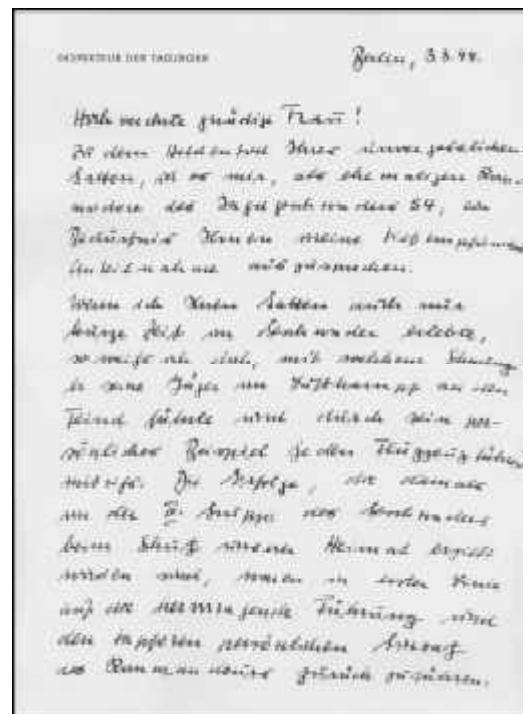 INSPEKTEUR DER TAGJÄGER
Berlin, 3.3.44.
Hochverehrte gnädige Frau!
Zu dem Heldentod Ihres unvergesslichen
Gatten, ist es mir, als ehemaligen Kom-
modore des Jagdgeschwaders 54, ein
Bedürfnis Ihnen meine tiefempfundene
Anteilnahme auszusprechen.
Wenn ich Ihren Gatten auch nur
kurze Zeit im Geschwader erlebte,
so weiß ich doch, mit welchem Schwung
er seine Jäger im Luftkampf an den
Feind führte und durch sein per-
sönliches Beispiel jeden Flugzeugführer
mitriß. Die Erfolge, die damals
in der Gruppe des Geschwaders
beim Schutz unserer Heimat erzielt
worden sind, waren in erster Linie
auf die hervorragende Führung und
den tapferen persönlichen Einsatz
des Kommandeurs zurückzuführen.